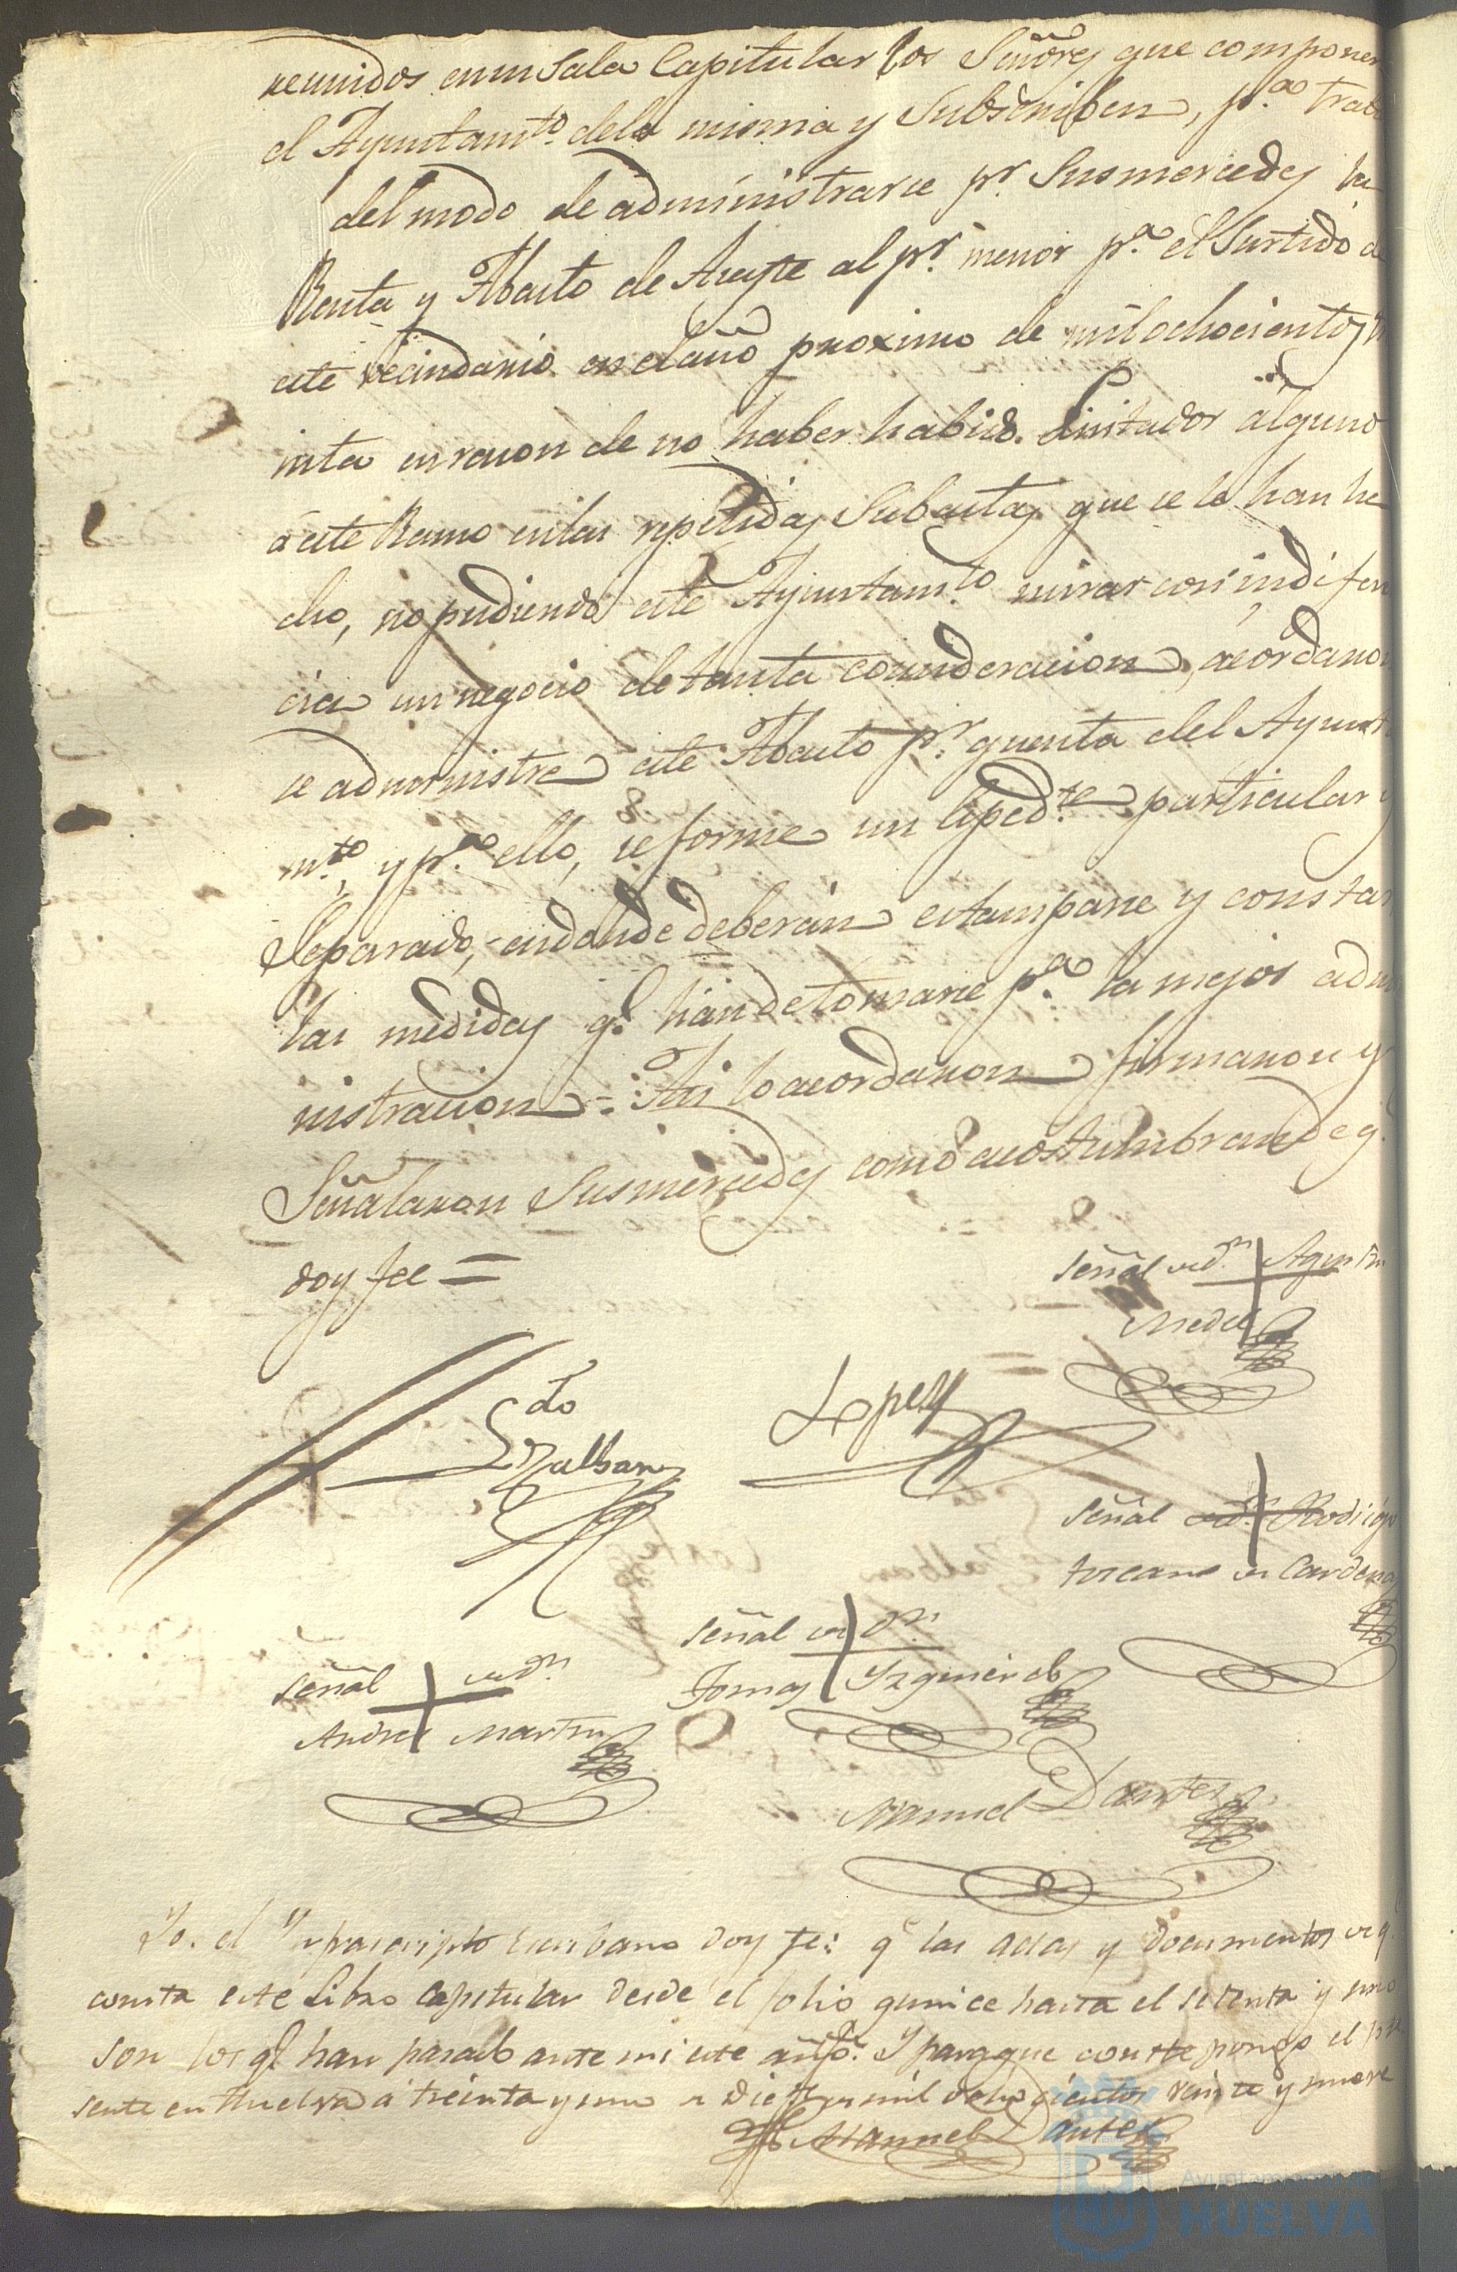 reunidos en su Sala Capitular los Señores que componen
el Ayuntamto. dela misma y Subscriben, pa. trat
del modo de administrarse pr. Susmercedes la
Renta y Abasto de Aceyte al pr. menor pa. el Surtido d
este vecindario en el año proximo de mil ochocientos
inta en razon de no haber habido Licitador alguno
a este Ramo en las repetidas Subastas que se le han he
cho, no pudiendo este Ayuntamto. mirar con indifern
cia un negocio de tanta consideracion, acordaron
se administre este Abasto pr. quenta del Ayunt
mto. y pa. ello, se forme un Expedte. particular y
Separado, en donde deberán estamparse y constar
las medidas q. han de tomarse pa. la mejor adm
nistracion = Asi lo acordaron firmaron y
Señalaron Susmercedes como acostumbran de q.
doy fee =
Señal de Dn. Agustin
Medel
Ldo.
Zalban
Lopez
Señal de Dn. Rodrigo
toscano de Cardenas
Señal de Dn.
Tomas Yzquierdo
Señal de Dn.
Andres Martin
Manuel Dantes
Yo. el Ynfrascripto Escribano doy fe: q. las actas y documentos de q.
consta este Libro Capitular desde el folio quince hasta el setenta y uno
son los q. han pasado ante mi este año. Y para que conste pongo el pre
sente en Huelva á treinta y uno de Dice. de mil ochocientos veinte y nueve
Manuel Dantes
Ayuntamiento de
HUELVA